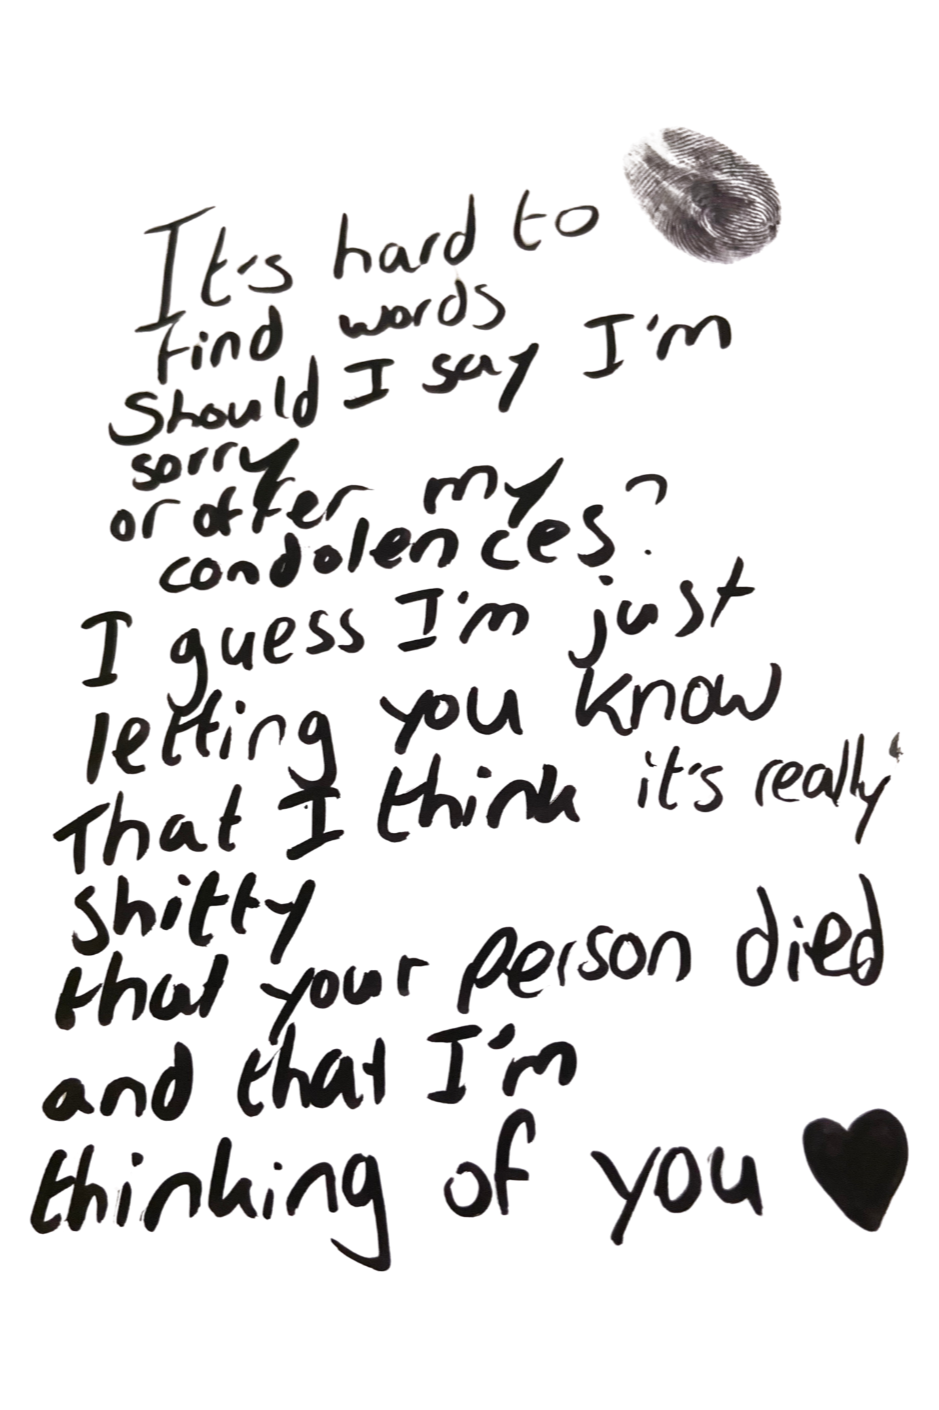 It's hard to
find words
Should I say I'm
sorry
or offer my
condolences?
I guess I'm just
letting you know
That I think it's really
shitty
that your person died
and that I'm
thinking of you